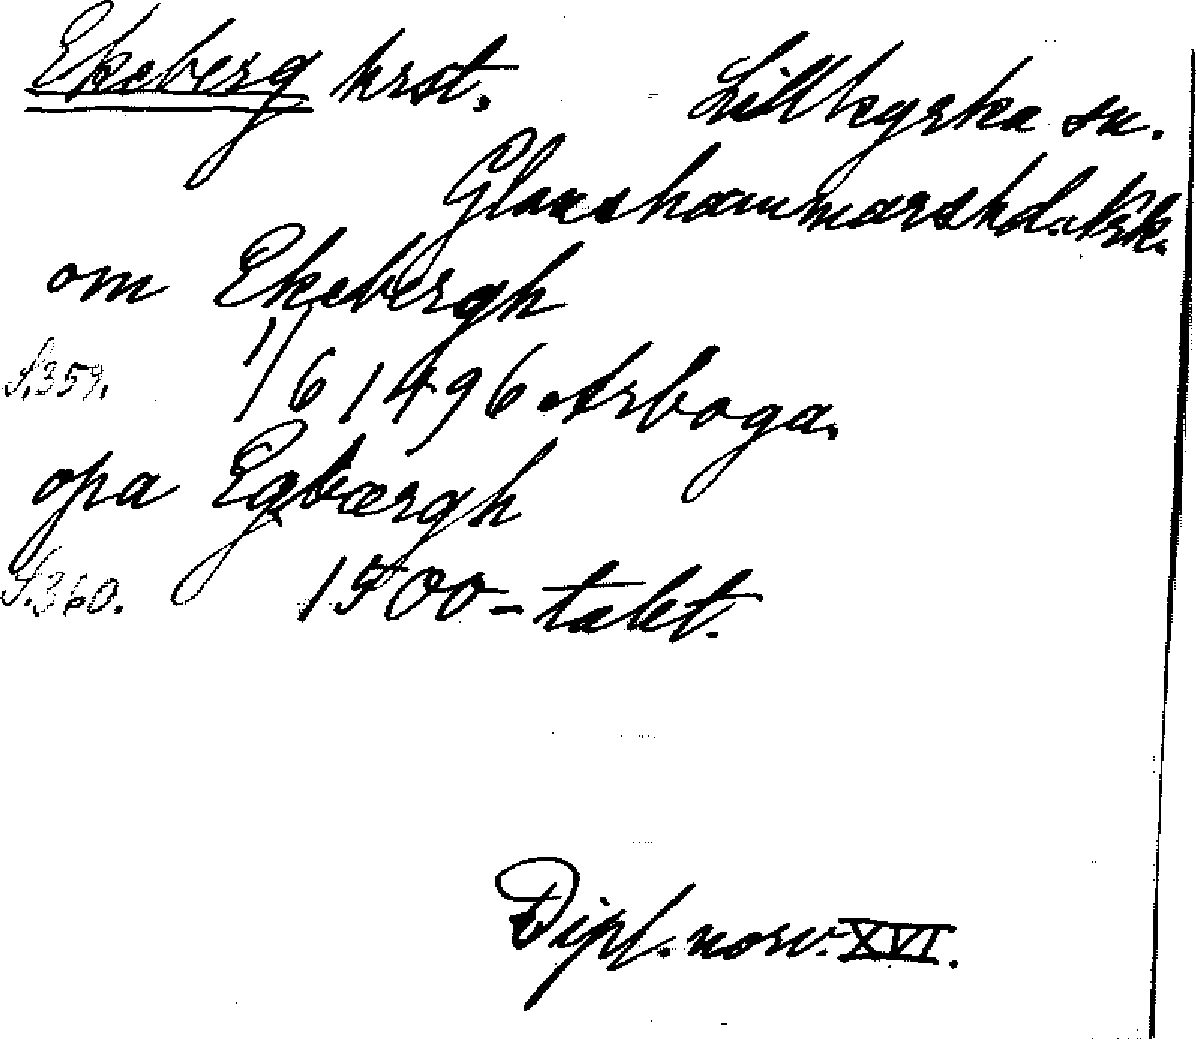 Ekeberg krst. Lillkyrka sn.
Glanshammarshd. Nrk.
om Ekebergh
S.359. 1/6 1496 Arboga.
opa Egbærgh
S.360. 1500-talet.
Dipl. norv. XVI.